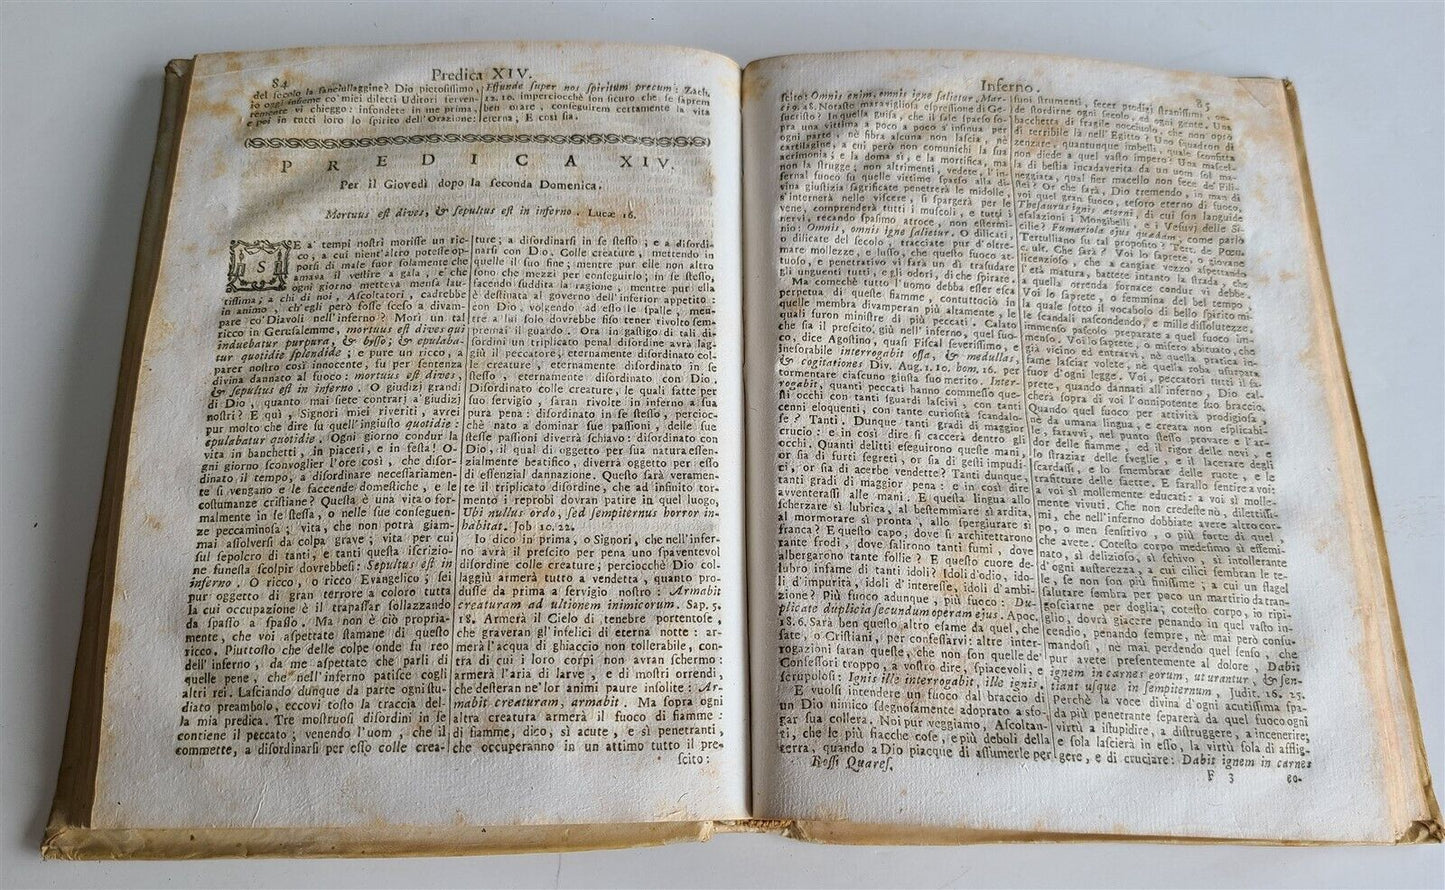 84
Predica XIV.
del ſecolo la fanciullaggine? Dio pietoſiſſimo,
io oggi inſieme co' miei diletti Uditori reveren-
temente vi chieggo: infondete in me prima,
e poi in tutti loro lo ſpirito dell'Orazione:
Effunde ſuper nos ſpiritum precum: Zach.
12. 10. imperciocchè ſon ſicuro che ſe ſaprem
ben orare, conſeguirem certamente la vita
eterna; E così ſia.
PREDICA XIV.
Per il Giovedì dopo la ſeconda Domenica.
Mortuus eſt dives, & ſepultus eſt in inferno. Lucæ 16.
SE a' tempi noſtri moriſſe un ric-
co, a cui nient'altro poteſſe op-
porſi di male fuor ſolamente che
amava il veſtire a gala, e che
ogni giorno metteva menſa lau-
tiſſima; a chi di noi, Aſcoltatori, cadrebbe
in animo, ch'egli però foſſe ſceſo a divam-
pare co'Diavoli nell'inferno? Morì un tal
ricco in Geruſalemme, mortuus eſt dives qui
induebatur purpura, & byſſo; & epulaba-
tur quotidie ſplendide; e pure un ricco, a
parer noſtro così innocente, fu per ſentenza
divina dannato al fuoco: mortuus eſt dives,
& ſepultus eſt in inferno. O giudizj grandi
di Dio, quanto mai ſiete contrarj a'giudizj
noſtri? E quì, Signori miei riveriti, avrei
pur molto che dire ſu quell'ingiuſto quotidie:
epulabatur quotidie. Ogni giorno condur la
vita in banchetti, in piaceri, e in feſta! O-
gni giorno ſconvoglier l'ore così, che diſor-
dinato il tempo, a diſordinare neceſſariamen-
te ſi vengano e le faccende domeſtiche, e le
coſtumanze criſtiane? Queſta è una vita o for-
malmente in ſe ſteſſa, o nelle ſue conſeguen-
ze peccaminoſa; vita, che non potrà giam-
mai aſſolverſi da colpa grave; vita per cui
ſul ſepolcro di tanti, e tanti queſta iſcrizio-
ne funeſta ſcolpir dovrebbeſi: Sepultus eſt in
inferno. O ricco, o ricco Evangelico; ſei
pur oggetto di gran terrore a coloro tutta
la cui occupazione è il trapaſſar ſollazzando
da ſpaſſo a ſpaſſo. Ma non è ciò propria-
mente, che voi aſpettate ſtamane di queſto
ricco. Piuttoſto che delle colpe onde fu reo
dell' inferno, da me aſpettate che parli di
quelle pene, che nell'inferno patiſce cogli
altri rei. Laſciando dunque da parte ogni ſtu-
diato preambolo, eccovi toſto la traccia del-
la mia predica. Tre moſtruoſi diſordini in ſe
contiene il peccato; venendo l'uom, che il
commette, a diſordinarſi per eſſo colle crea-
ture; a diſordinarſi in ſe ſteſſo; e a diſordi-
narſi con Dio. Colle creature, mettendo in
quelle il ſuo fine; mentre pur elle non altro
ſono che mezzi per conſeguirlo; in ſe ſteſſo,
facendo ſuddita la ragione, mentre pur ella
è deſtinata al governo dell'inferior appetito:
con Dio, volgendo ad eſſo le ſpalle, men-
tre a lui ſolo dovrebbe fiſo tener rivolto ſem-
premai il guardo. Ora in gaſtigo di tali di-
ſordini un triplicato penal diſordine avrà lag-
giù il peccatore; eternamente diſordinato col-
le creature, eternamente diſordinato in ſe
ſteſſo, eternamente diſordinato con Dio.
Diſordinato colle creature, le quali fatte per
ſuo ſervigio, ſaran rivolte in inferno a ſua
pura pena: diſordinato in ſe ſteſſo, percioc-
chè nato a dominar ſue paſſioni, delle ſue
ſteſſe paſſioni diverrà ſchiavo: diſordinato con
Dio, il qual di oggetto per ſua natura eſſen-
zialmente beatifico, diverrà oggetto per eſſo
di eſſenzial dannazione. Queſto ſarà veramen-
te il triplicato diſordine, che ad infuito tor-
mento i reprobi dovran patire in quel luogo,
Ubi nullus ordo, ſed ſempiternus horror in-
habitat. Job 10. 22.
Io dico in prima, o Signori, che nell'infer-
no avrà il preſcito per pena uno ſpaventevol
diſordine colle creature; perciocchè Dio col-
laggiù armerà tutto a vendetta, quanto pro-
duſſe da prima a ſervigio noſtro: Armabit
creaturam ad ultionem inimicorum. Sap. 5.
18. Armerà il Cielo di tenebre portentoſe,
che graveran gl'infelici di eterna notte: ar-
merà l'acqua di ghiaccio non tollerabile, con-
tra di cui i loro corpi non avran ſchermo:
armerà l'aria di larve, e di moſtri orrendi,
che deſteran ne'lor animi paure inſolite: Ar-
mabit creaturam, armabit. Ma ſopra ogni
altra creatura armerà il fuoco di fiamme:
di fiamme, dico, sì acute, e sì penetranti,
che occuperanno in un attimo tutto il pre-
ſcito:
Inferno.
85
ſcito: Omnis enim, omnis igne ſalietur. Mar-
ci 9. 48. Notaſte maraviglioſa eſpreſſione di Ge-
ſucriſto? In quella guiſa, che il ſale ſparſo ſo-
pra una vittima a poco a poco s'inſinua per
ogni parte, nè fibra alcuna non laſcia, nè
cartilagine, a cui però non comunichi la ſua
acrimonia; e la doma sì, e la mortifica, ma
non la ſtrugge; non altrimenti, vedere, l'in-
fernal fuoco ſu quelle vittime ſparſo alla di-
vina giuſtizia ſagrificate penetrerà le midolle,
s'internerà nelle viſcere, ſi ſpargerà per le
vene, comprenderà tutti i muſcoli, e tutti i
nervi, recando ſpaſimo atroce, non eſtermi-
nio: Omnis, omnis igne ſalietur. O dilicati,
o dilicate del ſecolo, tracciate pur d'oltre-
mare mollezze, e luſſo, che queſto fuoco at-
tuoſo, e penetrativo vi farà un dì traſudare
gli unguenti tutti, e gli odori, di che ſpirate.
Ma comechè tutto l'uomo debba eſſer eſca
perpetua di queſte fiamme, contuttociò in
quelle membra divamperan più altamente, le
quali furon miniſtre di più peccati. Calato
che ſia il preſcito giù nell' inferno, quel fuo-
co, dice Agoſtino, quaſi Fiſcal ſeveriſſimo, e
ineſorabile interrogabit oſſa, & medullas,
& cogitationes Div. Aug. l. 10. hom. 16. per
tormentare ciaſcuno giuſta ſuo merito. Inter-
rogabit, quanti peccati hanno commeſſo que-
ſti occhi con tanti ſguardi laſcivi, con tanti
cenni eloquenti, con tante curioſità ſcandalo-
ſe? Tanti. Dunque tanti gradi di maggior
crucio: e in così dire ſi caccerà dentro gli
occhi. Quanti delitti eſeguirono queſte mani,
or ſia di furti ſegreti, or ſia di geſti impudi-
ci, or ſia di acerbe vendette? Tanti dunque
tanti gradi di maggior pena: e in così dire
avventeraſſi alle mani. E queſta lingua allo
ſcherzare sì lubrica, al beſtemmiare sì ardita,
al mormorare sì pronta, allo ſpergiurare sì
franca? E queſto capo, dove ſi architettarono
tante frodi, dove ſalirono tanti fumi, dove
albergarono tante follie? E queſto cuore de-
lubro infame di tanti idoli? Idoli d'odio, ido-
li d'impurità, idoli d'intereſſe, idoli d'ambi-
zione? Più fuoco adunque, più fuoco: Du-
plicate duplicia ſecundum operam ejus. Apoc.
18. 6. Sarà ben queſto altro eſame da quel, che
fate, o Criſtiani, per confeſſarvi: altre inter-
rogazioni ſaran queſte, che non ſon quelle de'
Confeſſori troppo, a voſtro dire, ſpiacevoli, e
ſcrupoloſi: Ignis ille interrogabit, ille ignis.
E vuolſi intendere un fuoco dal braccio di
un Dio nimico ſdegnoſamente adoprato a sfo-
gar ſua collera. Noi pur veggiamo, Aſcoltan-
ti, che le più fiacche coſe, e più deboli della
terra, quando a Dio piacque di aſſumerle per
Roſſi Quareſ.
ſuoi ſtrumenti, fecer prodizj ſtraniſſimi, on-
de ſtordirne ogni ſecolo, ed ogni gente. Una
bacchetta di fragile nocciuolo, che non oprò
di terribile là nell'Egitto? Uno ſquadron di
zenzare, quantunque imbelli, quale ſconfitta
non diede a quel vaſto impero? Una maſcel-
la di beſtia incadaverita da un uom ſol ma-
neggiata, qual fier macello non fece de' Fili-
ſtei? Or che farà, Dio tremendo, in man di
voi quel gran fuoco, teſoro eterno di fuoco,
Theſaurus ignis æterni, di cui ſon languide
eſalazioni i Mongibelli, e i Veſuvj delle Si-
cilie? Fumariola ejus quædam, come parlò
Tertulliano ſu tal propoſito? Tert. de Pœn.
c. ult. Che farà? Voi lo ſaprete, o giovane
licenzioſo, che a cangiar vezzo aſpettando
l'età matura, battete intanto la ſtrada, che
a quella orrenda fornace condur vi debbe.
Voi lo ſaprete, o femmina del bel tempo,
la quale ſotto il vocabolo di bello ſpirito mi-
le ſcandali naſcondendo, e mille diſſolutezze,
immenſo paſcolo preparate a quel fuoco im-
menſo. Voi lo ſaprete, o miſero abituato, che
già vicino ed entrarvi, nè quella pratica in-
fame laſciar volete, nè quella roba uſurpata
fuor d'ogni legge. Voi, peccatori tutti il ſa-
prete, quando dannati all'inferno, Dio cal-
cherà ſopra di voi l'onnipotente ſuo braccio.
Quando quel fuoco per attività prodigioſa,
nè da umana lingua, e creata non eſplicabi-
le, faravvi, nel punto ſteſſo provare e l'ar-
dor delle fiamme, ed il rigor delle nevi, e
lo ſtraziar delle ſveglie, e il lacerare degli
ſcardaſſi, e lo ſmembrar delle ruote, e le
trafitture delle ſaette. E farallo ſentire a voi:
a voi sì mollemente educati: a voi sì molle-
mente vivuti. Che non credeſte nò, dilettiſſi-
mi, che nell'inferno dobbiate avere altro cor-
po, o men ſenſitivo, o più forte di quel,
che avete. Coteſto corpo medeſimo sì effemi-
nato, sì delizioſo, sì ſchivo, sì intollerante
d'ogni auſterezza, a cui cilici ſembran le te-
le, ſe non ſon più finiſſime; a cui un flagel
ſalutare ſembra per poco un martirio da tran-
goſciarne per doglia; coteſto corpo, io ripi-
glio, dovrà giacere penando in quel vaſto in-
cendio, penando ſempre, nè mai però conſu-
mandoſi, nè mai perdendo quel ſenſo, che
pur avete preſentemente al dolore, Dabit
ignem in carnes eorum, ut urantur, & ſen-
tiant uſque in ſempiternum, Judit. 16. 25.
Perchè la voce divina d'ogni acutiſſima ſpa-
da più penetrante ſeparerà da quel fuoco ogni
virtù a iſtupidire, a diſtruggere, a incenerire;
e ſola laſcierà in eſſo, la virtù ſola di afflig-
gere, e di cruciare: Dabit ignem in carnes
F 3
eo-